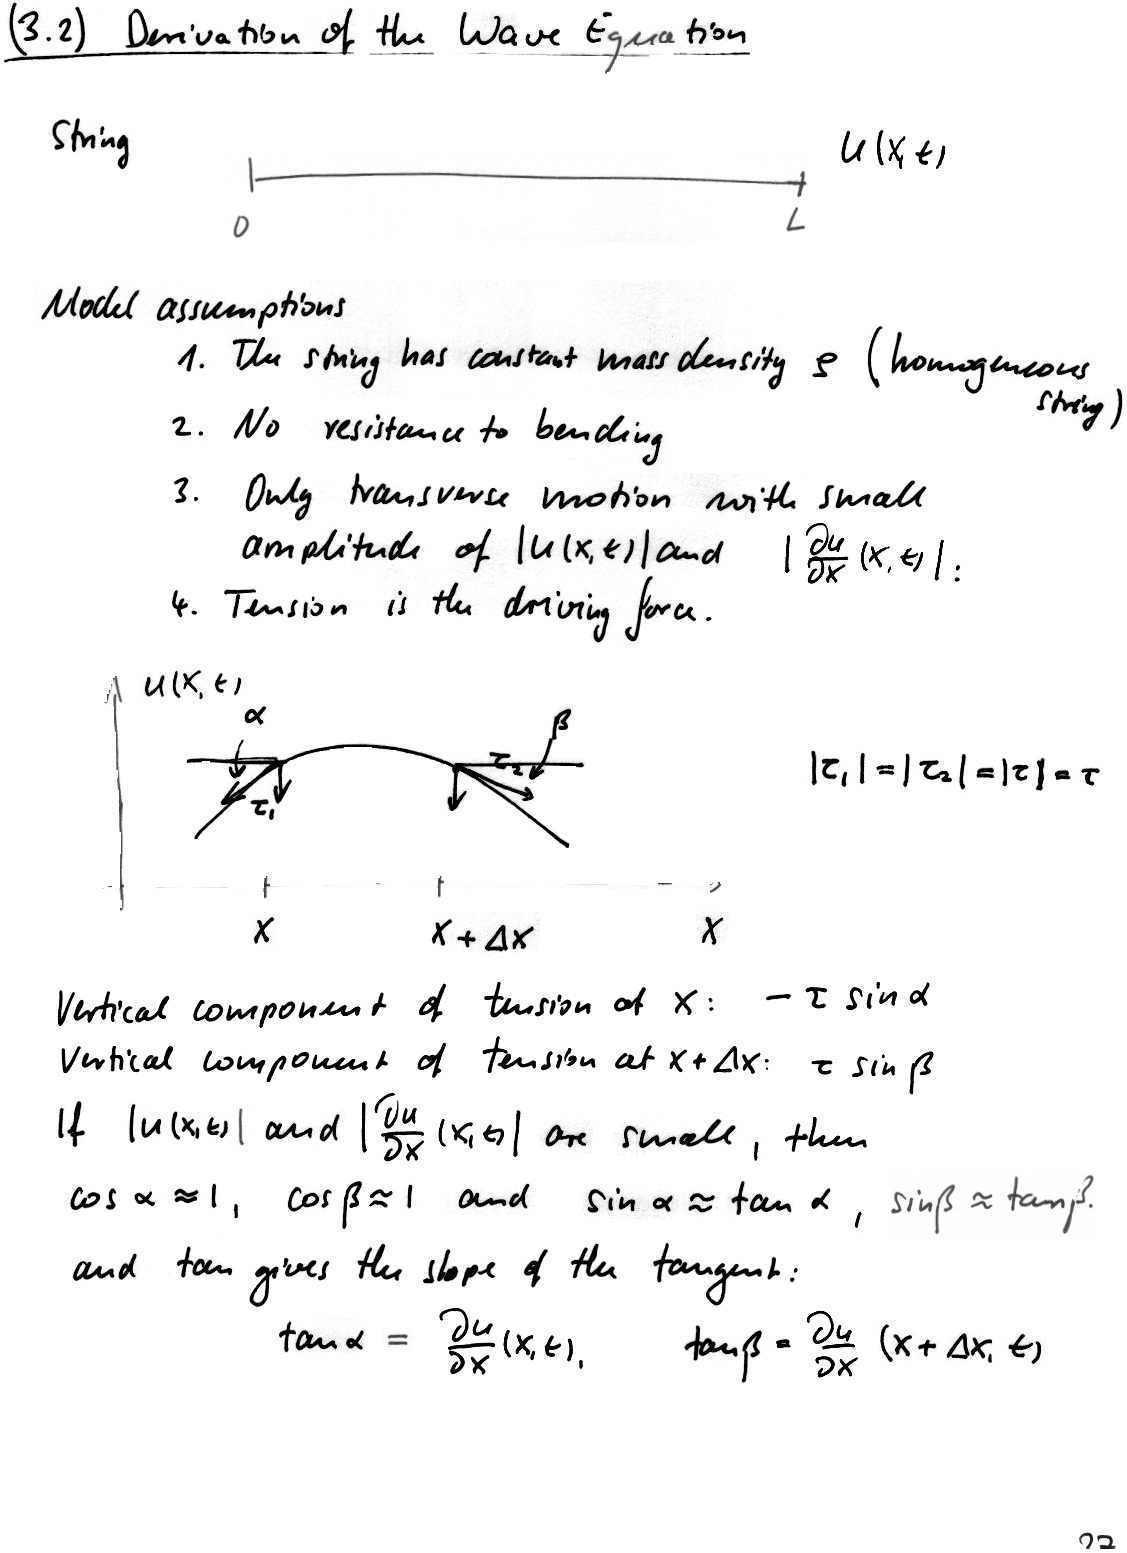 (3.2) Derivation of the Wave Equation
String
u(x,t)
0
L
Model assumptions
1. The string has constant mass density ρ (homogeneous
string)
2. No resistance to bending
3. Only transverse motion with small
amplitude of |u(x,t)| and |∂u/∂x (x,t)|.
4. Tension is the driving force.
u(x,t)
α
β
τ₁
τ₂
|τ₁| = |τ₂| = |τ| = τ
x
x + Δx
x
Vertical component of tension at x: - τ sin α
Vertical component of tension at x + Δx: τ sin β
If |u(x,t)| and |∂u/∂x (x,t)| are small, then
cos α ≈ 1, cos β ≈ 1 and sin α ≈ tan α, sin β ≈ tan β.
and tan gives the slope of the tangent:
tan α = ∂u/∂x (x,t), tan β = ∂u/∂x (x + Δx, t)